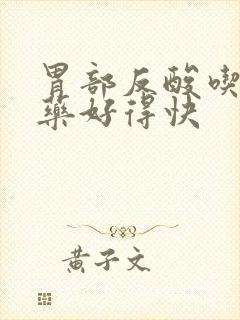 胃部反酸喫
藥好得快
黄子文